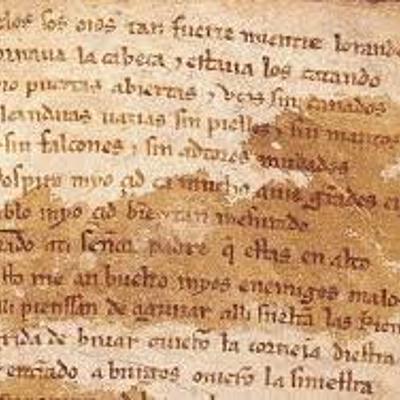 elos sos oios tan fuerte mientre lorando
ornaua la cabeça ⁊ estaua los catando
io puertas abiertas ⁊ vços sin cañados
lcandaras uazias sin pielles ⁊ sin mantos
sin falcones ⁊ sin adtores mudados
ospiro myo çid ca mucho auie grãdes cu
ablo myo çid biẽ ⁊ tan mesurado
rado ati señor padre q̃ estas en alto
sto me an buelto myos enemigos malos
lli pienssan de aguijar alli sueltã las Rien
xida de biuar ouierõ la corneia diestra
entrãdo a burgos ouierõ la siniestra